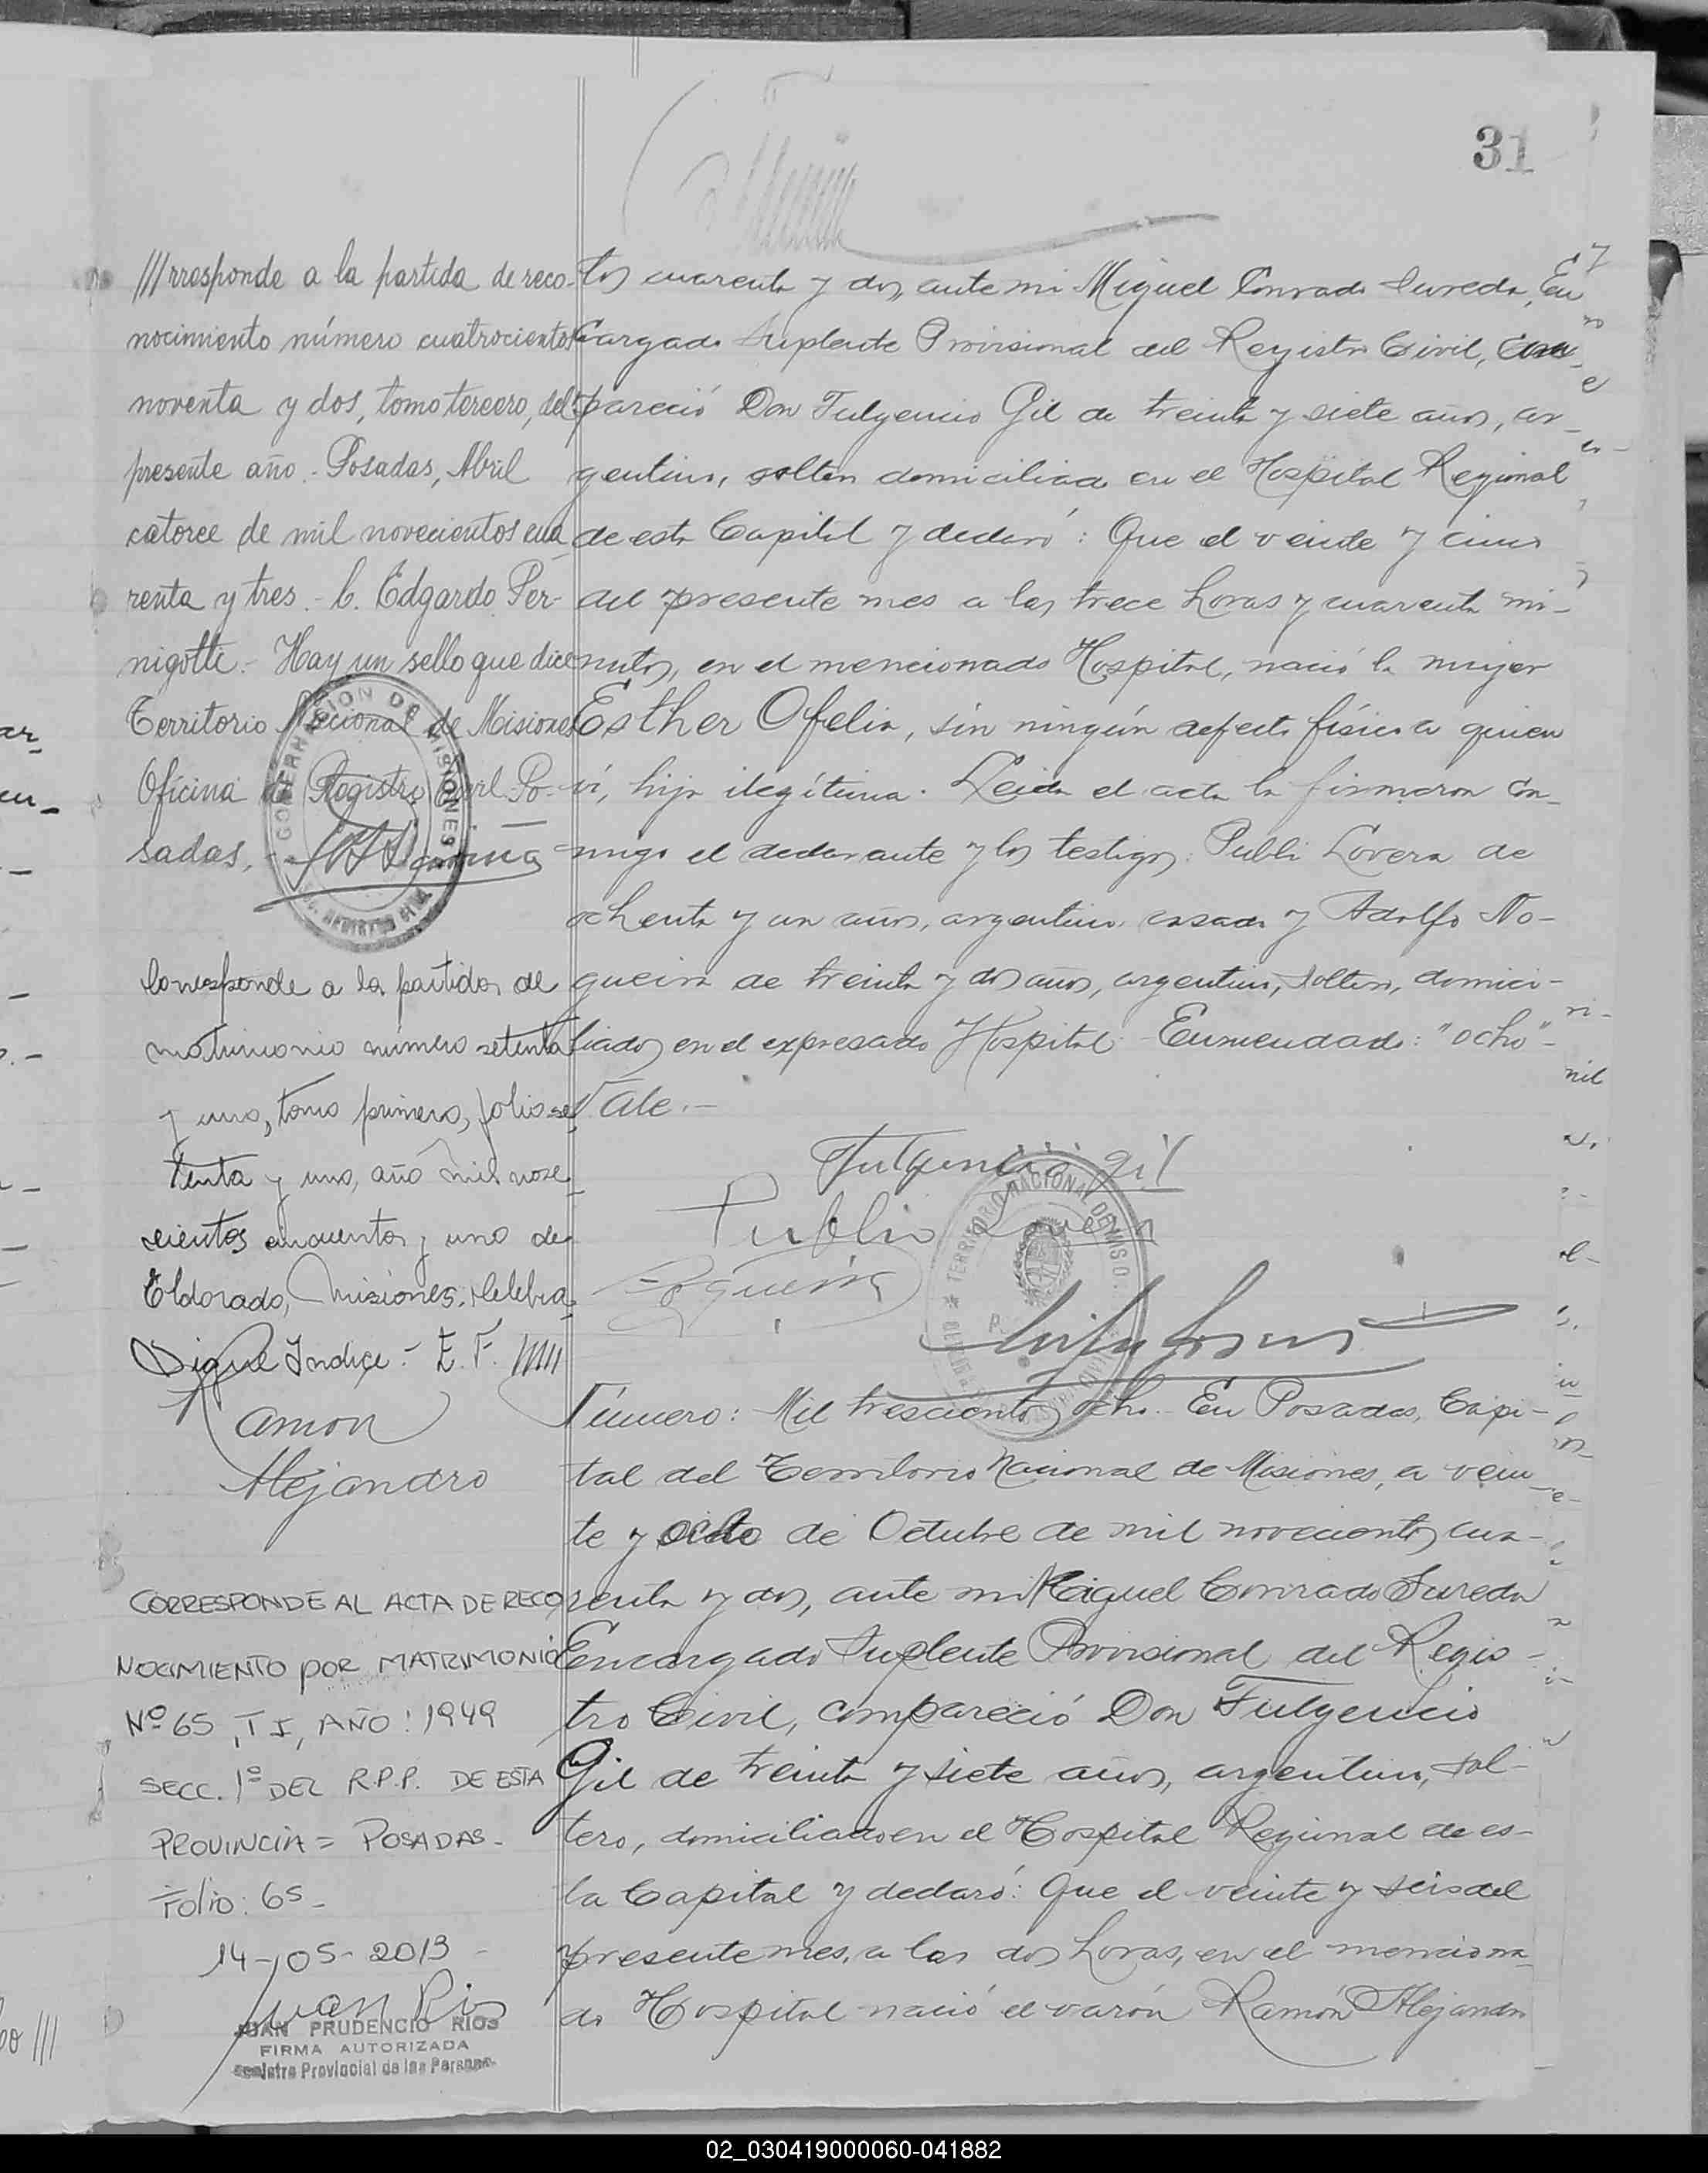 31
///rresponde a la partida de reco-
nocimiento número cuatrocientos
noventa y dos, tomo tercero, del
presente año.- Posadas, Abril
catorce de mil novecientos cua
renta y tres.- C. Edgardo Per-
nigotti.- Hay un sello que dice
Territorio Nacional de Misiones
Oficina Registro Civil Po-
sadas.-
GOBERNACION DE MISIONES
Corresponde a la partida de
matrimonio número setenta
y uno, tomo primero, folio se
tenta y uno, año mil nove
cientos cincuenta y uno de
Eldorado, Misiones, celebra
Sigue Indice.- E. F.
Ramon
Alejandro
CORRESPONDE AL ACTA DE RECO
NOCIMIENTO POR MATRIMONIO
Nº 65, T I, AÑO: 1949
SECC. 1º DEL R.P.P. DE ESTA
PROVINCIA = POSADAS-
Folio: 65-
14-05-2013-
Juan Rios
JUAN PRUDENCIO RIOS
FIRMA AUTORIZADA
Registro Provincial de las Personas
tos cuarenta y dos, ante mi Miguel Conrado Sureda, En
cargado Suplente Provisional del Registro Civil, com-
pareció Don Fulgencio Gil de treinta y siete años, ar-
gentino, soltero domiciliado en el Hospital Regional
de esta Capital y declaró: Que el veinte y cinco
del presente mes a las trece horas y cuarenta mi-
nutos, en el mencionado Hospital, nació la mujer
Esther Ofelia, sin ningún defecto físico a quien
ví, hija ilegítima. Leida el acta la firmaron con-
migo el declarante y los testigos: Publio Lovera de
ochenta y un años, argentino casado y Adolfo No-
gueira de treinta y dos años, argentino, soltero, domici-
liados en el expresado Hospital.- Enmendado: "ocho"-
Vale.-
Fulgencio Gil
Publio Lovera
TERRITORIO NACIONAL DE MISIO.
Número: Mil trescientos ocho.- En Posadas, Capi-
tal del Territorio Nacional de Misiones, a vein-
te y ocho de Octubre de mil novecientos cua-
renta y dos, ante mi Miguel Conrado Sureda
Encargado Suplente Provisional del Regis-
tro Civil, compareció Don Fulgencio
Gil de treinta y siete años, argentino, sol-
tero, domiciliado en el Hospital Regional de es-
ta Capital y declaró: Que el veinte y seis del
presente mes, a las dos horas, en el menciona
do Hospital nació el varón Ramón Alejandro
02_030419000060-041882